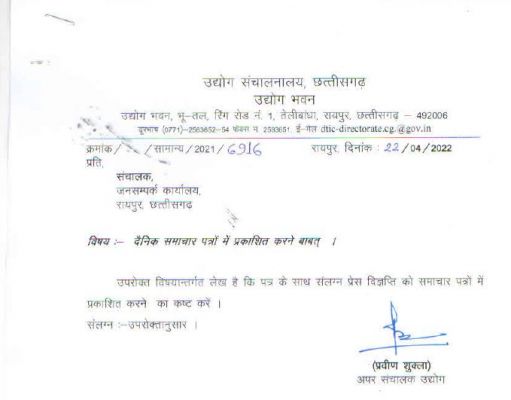 उद्योग संचालनालय, छत्तीसगढ़
उद्योग भवन
उद्योग भवन, भू-तल, रिंग रोड नं. 1, तेलीबांधा, रायपुर, छत्तीसगढ़ – 492006
दूरभाष (0771)-2583652-54 फोक्स न. 2583651, ई-मेल dtic-directorate.cg.@gov.in
क्रमांक/ /सामान्य/2021/6916 रायपुर, दिनांक : 22/04/2022
प्रति,
संचालक,
जनसम्पर्क कार्यालय,
रायपुर, छत्तीसगढ़
विषय :– दैनिक समाचार पत्रों में प्रकाशित करने बाबत् ।
उपरोक्त विषयान्तर्गत लेख है कि पत्र के साथ संलग्न प्रेस विज्ञप्ति को समाचार पत्रों में
प्रकाशित करने का कष्ट करें ।
संलग्न :–उपरोक्तानुसार ।
(प्रवीण शुक्ला)
अपर संचालक उद्योग